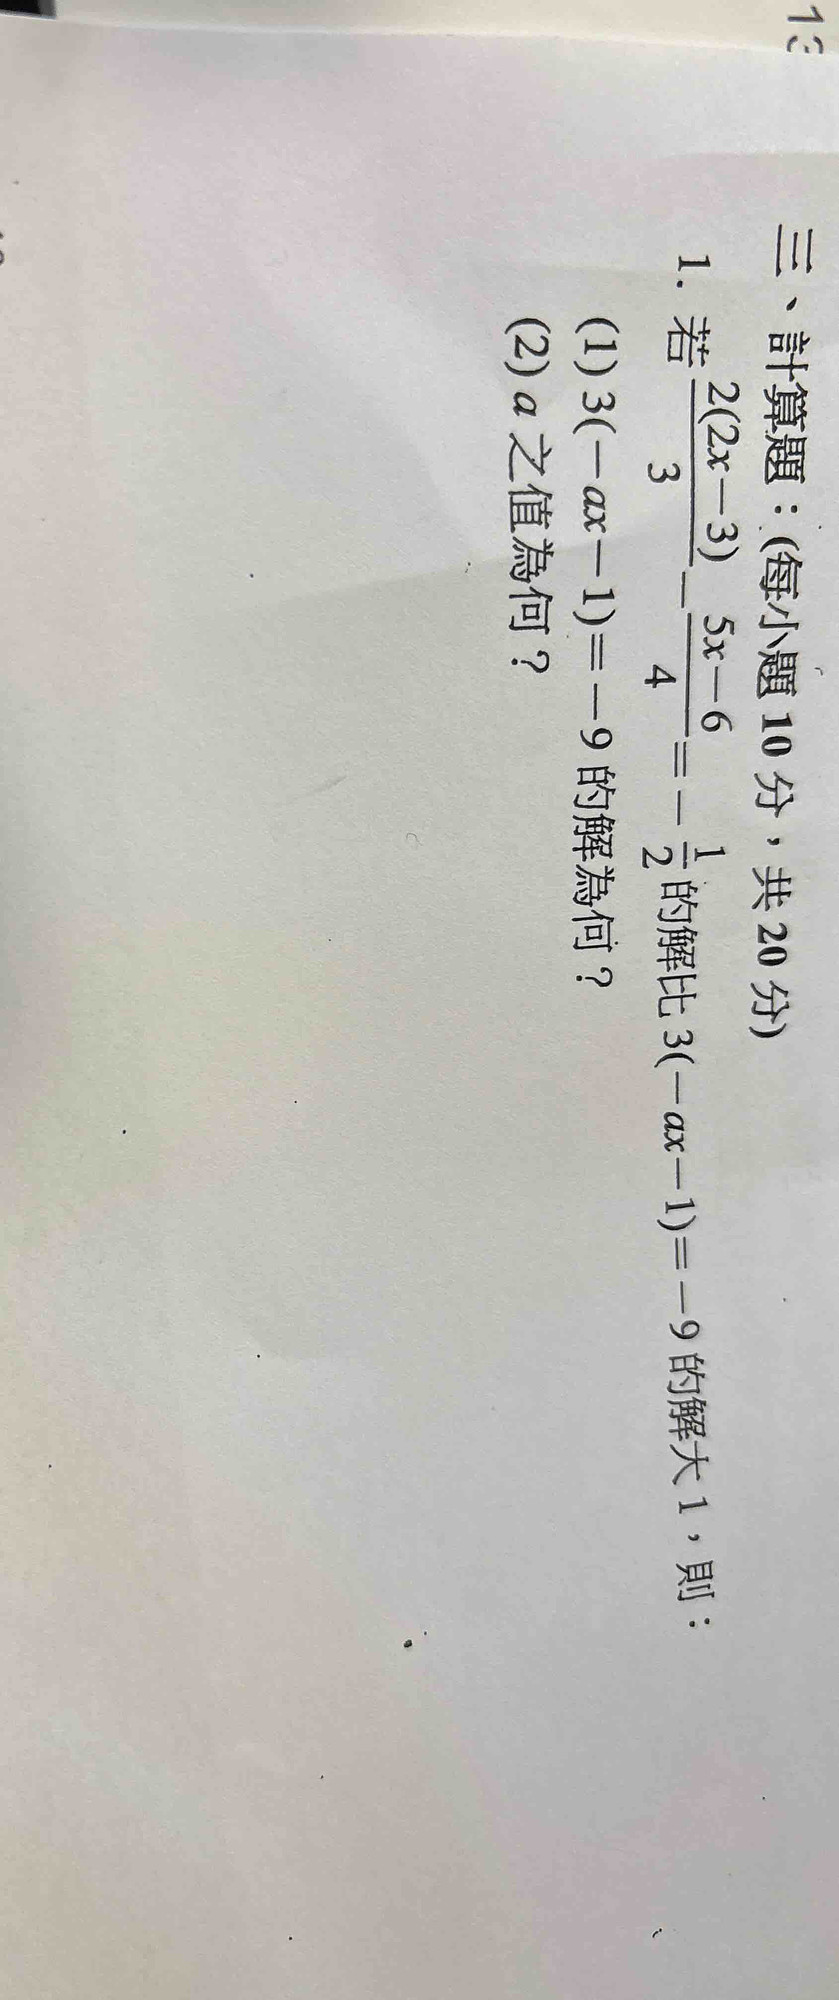 三、計算題：(每小題 10 分，共 20 分)
1. 若 \frac{2(2x-3)}{3} - \frac{5x-6}{4} = -\frac{1}{2} 的解比 3(-ax-1)=-9 的解大 1，則：
(1) 3(-ax-1)=-9 的解為何？
(2) a 之值為何？